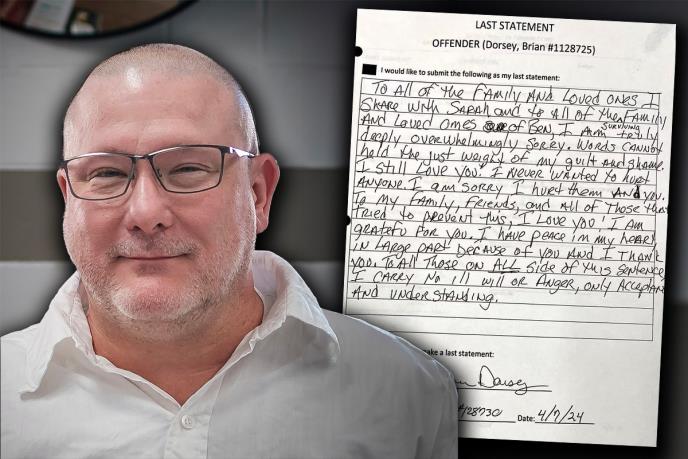 LAST STATEMENT
OFFENDER (Dorsey, Brian #1128725)
I would like to submit the following as my last statement:
TO All of the Family AND Loved ones I
Share with Sarah and to all of the surviving Family
AND Loved ones of Ben, I Am totally
deeply, overwhelmingly Sorry. Words cannot
hold the just weight of my guilt and shame.
I still Love you. I never wanted to hurt
Anyone. I am sorry I hurt them And you.
to my Family, friends, and all of those that
tried to prevent this, I Love you! I am
grateful for you. I have peace in my heart,
in large part because of you and I thank
you. To all those on ALL side of this sentence,
I carry no ill will or Anger, only Acceptan
And understanding.
ake a last statement:
Dorsey
Date: 4/9/24